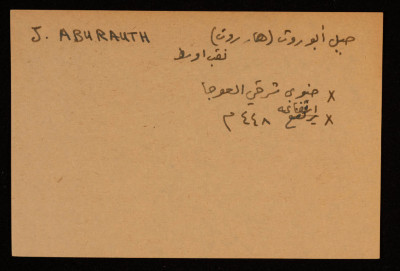 J. ABURAUTH
جبل أبو روث (هار روت)
نقب اوسط
x جنوبي شرقي العوجا
x ارتفاعه ٤٤٨ م